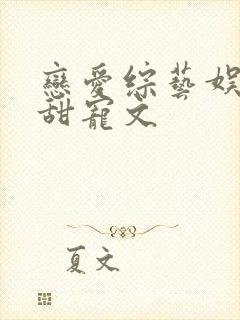 戀愛綜藝娛
甜寵文
夏文